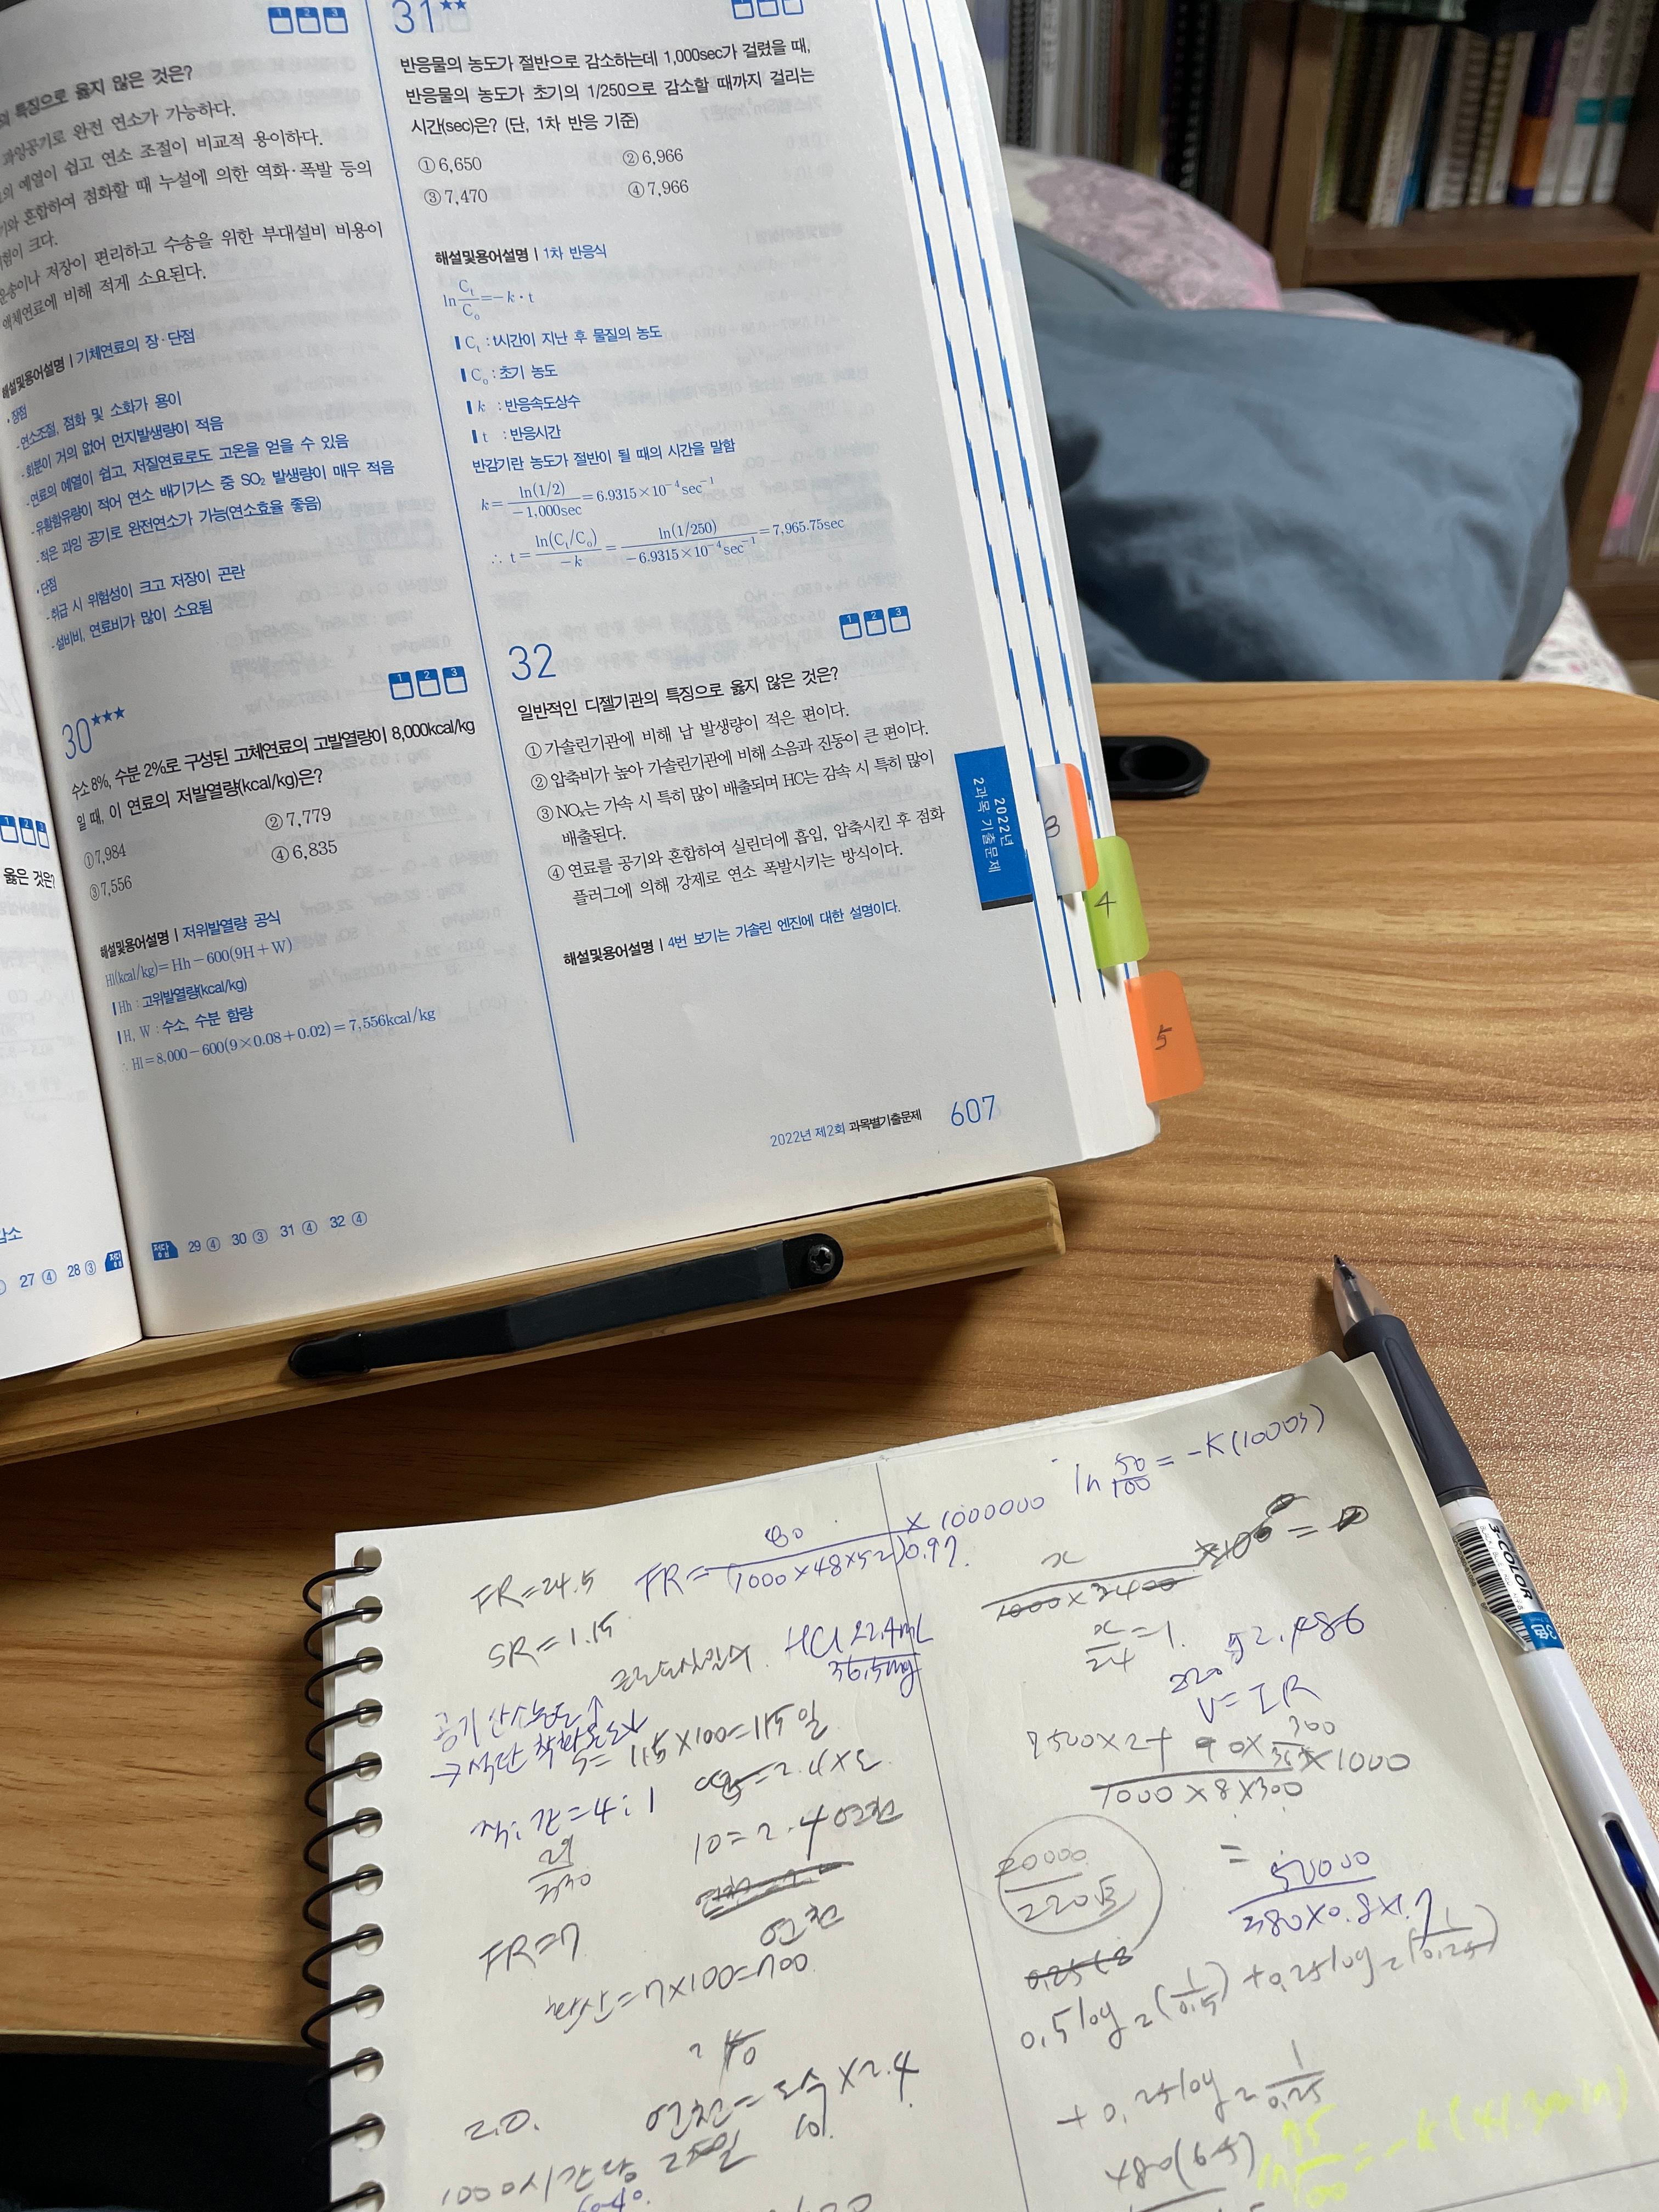 특징으로 옳지 않은 것은?
과잉공기로 완전 연소가 가능하다.
의 예열이 쉽고 연소 조절이 비교적 용이하다.
기와 혼합하여 점화할 때 누설에 의한 역화·폭발 등의
험이 크다.
운송이나 저장이 편리하고 수송을 위한 부대설비 비용이
액체연료에 비해 적게 소요된다.
해설및용어설명 | 기체연료의 장·단점
·장점
-연소조절, 점화 및 소화가 용이
-회분이 거의 없어 먼지발생량이 적음
-연료의 예열이 쉽고, 저질연료로도 고온을 얻을 수 있음
-유황함유량이 적어 연소 배기가스 중 SO₂ 발생량이 매우 적음
-적은 과잉 공기로 완전연소가 가능(연소효율 좋음)
·단점
-취급 시 위험성이 크고 저장이 곤란
-설비비, 연료비가 많이 소요됨
1 2 3
30★★★
수소 8%, 수분 2%로 구성된 고체연료의 고발열량이 8,000kcal/kg
일 때, 이 연료의 저발열량(kcal/kg)은?
①7,984 ②7,779
③7,556 ④6,835
해설및용어설명 | 저위발열량 공식
Hl(kcal/kg)=Hh-600(9H+W)
Hh : 고위발열량(kcal/kg)
H, W : 수소, 수분 함량
∴ Hl=8,000-600(9×0.08+0.02)=7,556kcal/kg
31★★
반응물의 농도가 절반으로 감소하는데 1,000sec가 걸렸을 때,
반응물의 농도가 초기의 1/250으로 감소할 때까지 걸리는
시간(sec)은? (단, 1차 반응 기준)
①6,650 ②6,966
③7,470 ④7,966
해설및용어설명 | 1차 반응식
ln Ct/Co=-k·t
Ct : t시간이 지난 후 물질의 농도
Co : 초기 농도
k : 반응속도상수
t : 반응시간
반감기란 농도가 절반이 될 때의 시간을 말함
k=ln(1/2)/-1,000sec=6.9315×10⁻⁴sec⁻¹
∴ t=ln(Ct/Co)/-k=ln(1/250)/-6.9315×10⁻⁴sec⁻¹=7,965.75sec
1 2 3
32
일반적인 디젤기관의 특징으로 옳지 않은 것은?
①가솔린기관에 비해 납 발생량이 적은 편이다.
②압축비가 높아 가솔린기관에 비해 소음과 진동이 큰 편이다.
③NOx는 가속 시 특히 많이 배출되며 HC는 감속 시 특히 많이
배출된다.
④연료를 공기와 혼합하여 실린더에 흡입, 압축시킨 후 점화
플러그에 의해 강제로 연소 폭발시키는 방식이다.
해설및용어설명 | 4번 보기는 가솔린 엔진에 대한 설명이다.
2022년
2과목 기출문제
3
4
5
2022년 제2회 과목별기출문제 607
옳은 것은?
감소
27 ④ 28 ③ 정답
정답 29 ④ 30 ③ 31 ④ 32 ④
3-COLOR
ln 50/100 = -K(1000s)
FR=24.5
FR= /(1000×48×52)0.97 ×1000000
SR=1.15
HCl 22.4mL/36.5mg
공기 산소농도↑
115×100=115일
착:간=4:1
10=2.4연천
연천
FR=7
확산=7×100=700
2.0.
연천= ×2.4
1000시간당
x/24=1.
V=IR
7500×2+90× ×1000
1000×8×300
20000/220√3
= 50000/380×0.8×1.7
0.5log₂(1/0.5)+0.25log₂(1/0.25)
+0.25log₂ 1/0.25